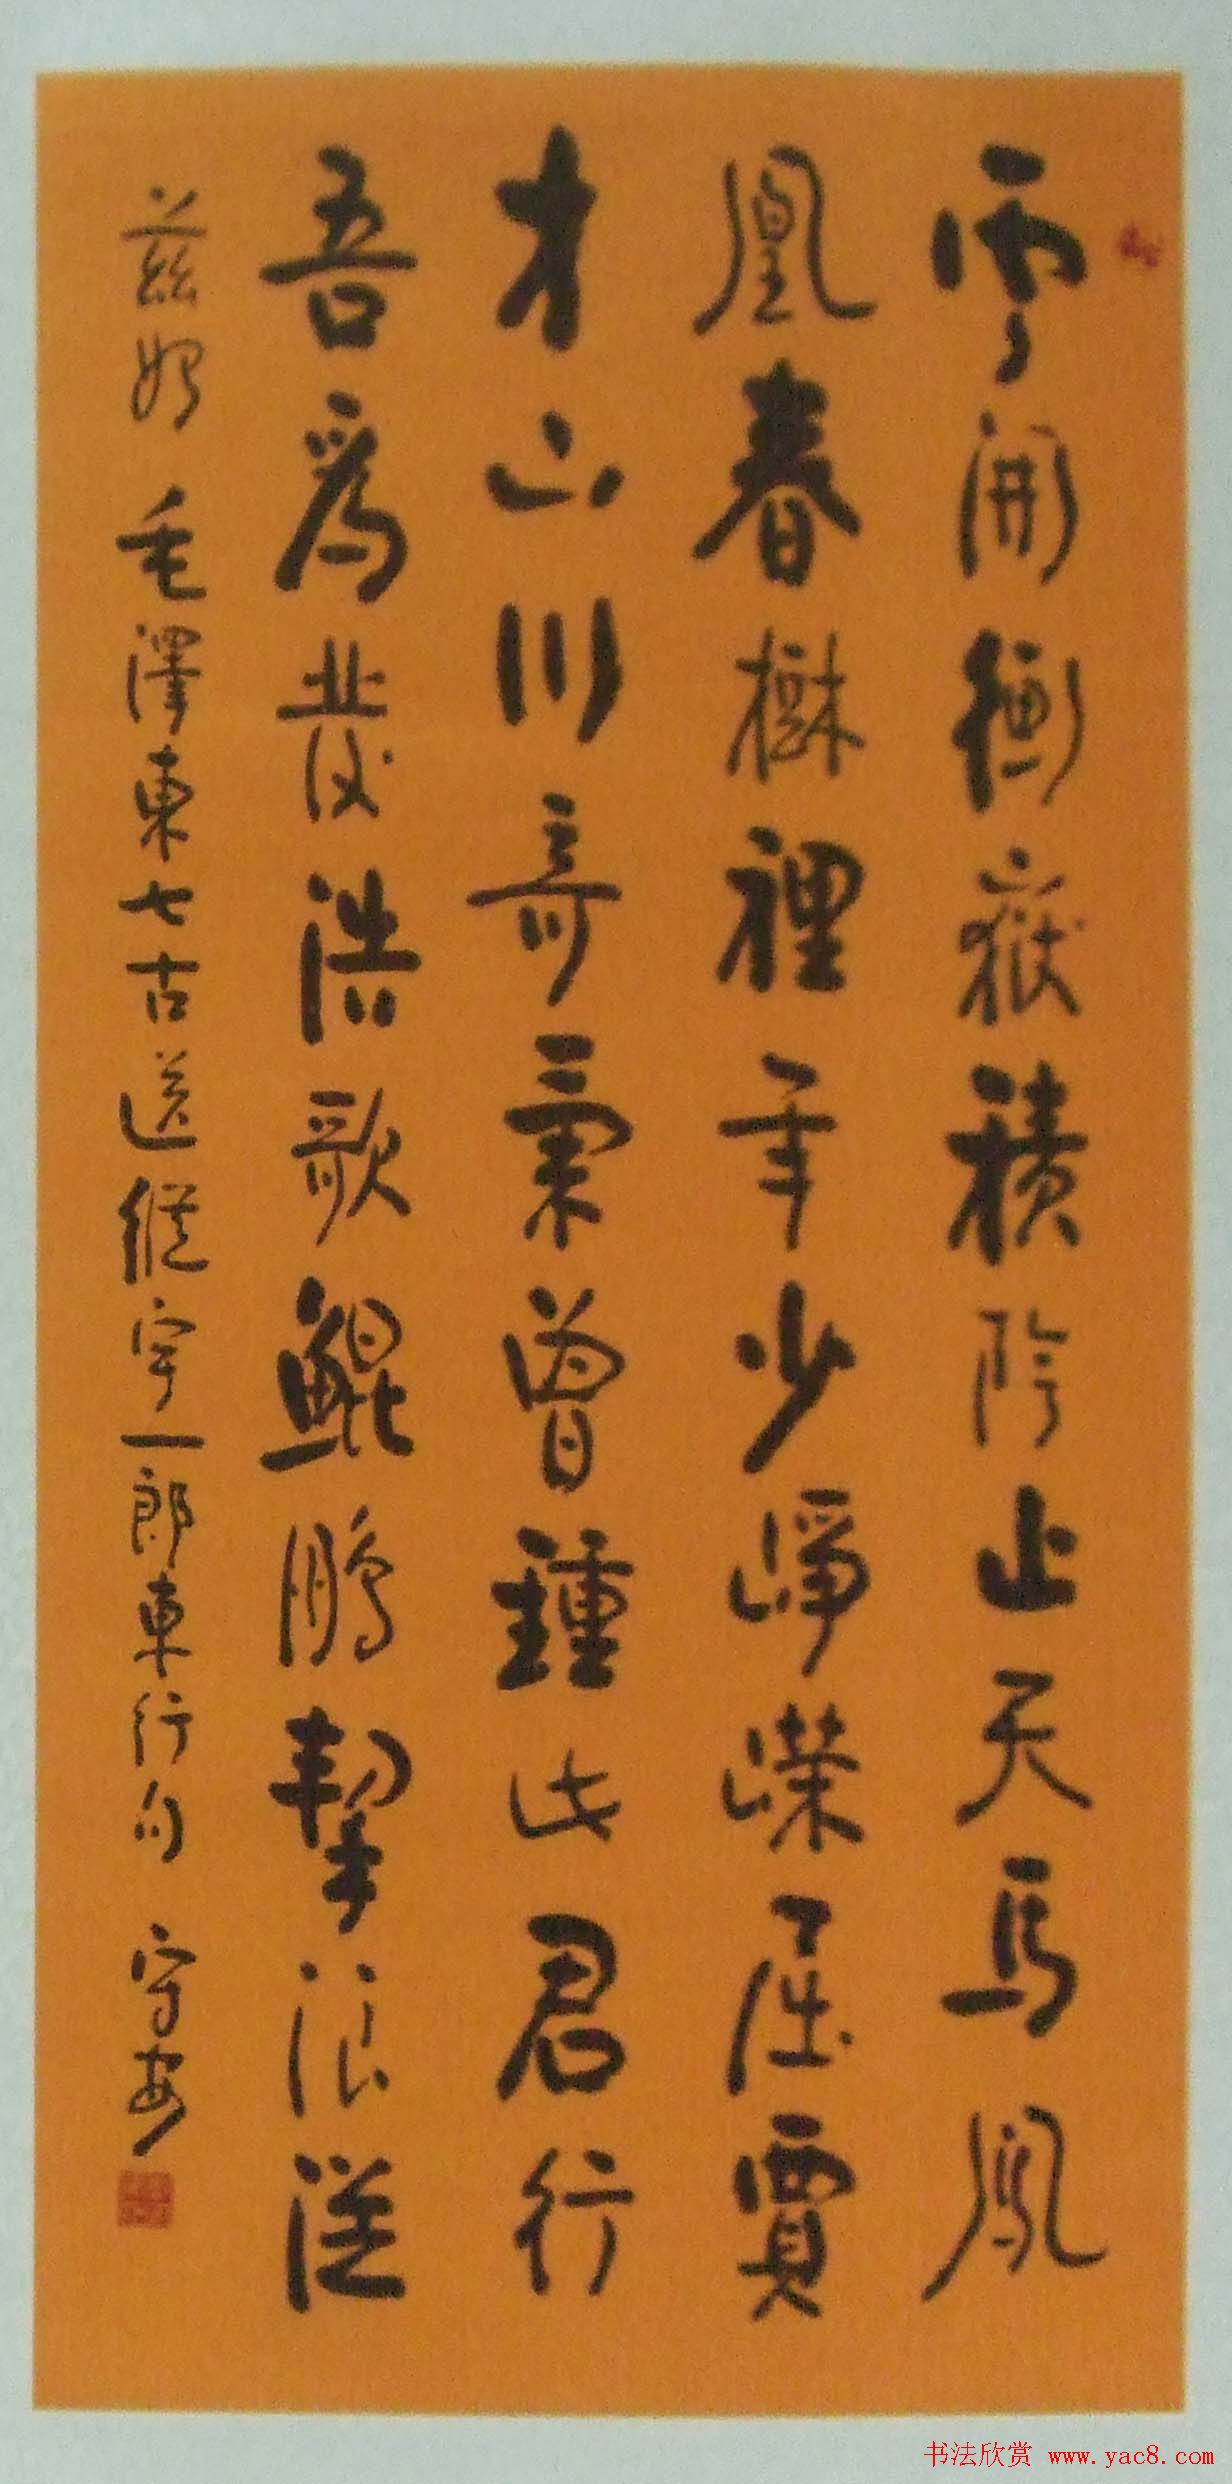 雲開衡嶽積陰止天馬鳳
凰春樹裡年少崢嶸屈賈
才山川奇氣曾鍾此君行
吾爲發浩歌鯤鵬擊浪從
茲始 毛澤東七古送縱宇一郎東行句 守安
书法欣赏 www.yac8.com